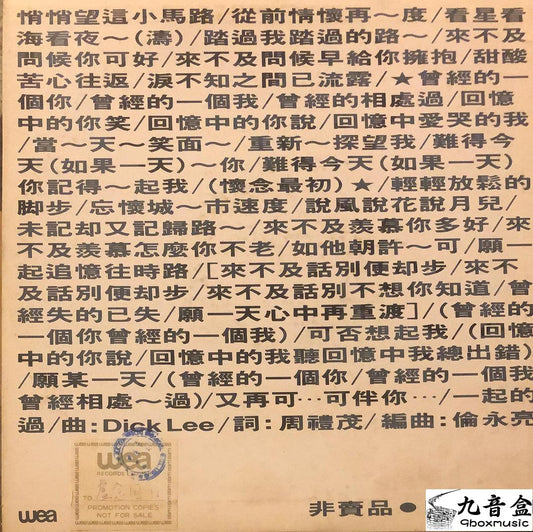 悄悄望這小馬路/從前情懷再～度/看星看
海看夜～(濤)/踏過我踏過的路～/來不及
問候你可好/來不及問候早給你擁抱/甜酸
苦心往返/淚不知之間已流露/★曾經的一
個你/曾經的一個我/曾經的相處過/回憶
中的你笑/回憶中的你說/回憶中愛哭的我
/當～天～笑面～/重新～探望我/難得今
天(如果一天)～你/難得今天(如果一天)
你記得～起我/(懷念最初)★/輕輕放鬆的
脚步/忘懷城～市速度/說風說花說月兒/
未記却又記歸路～/來不及羨慕你多好/來
不及羨慕怎麼你不老/如他朝許～可/願一
起追憶往時路/[來不及話別便却步/來不
及話別便却步/來不及話別不想你知道/曾
經失的已失/願一天心中再重渡]/(曾經的
一個你曾經的一個我)/可否想起我/(回憶
中的你說/回憶中的我聽回憶中我總出錯)
/願某一天/(曾經的一個你/曾經的一個我
曾經相處～過)/又再可…可伴你…/一起的
過/曲:Dick Lee/詞:周禮茂/編曲:倫永亮
wea
RECORDS
TO
PROMOTION COPIES
NOT FOR SALE
wea
非賣品●
九音盒
9boxmusic